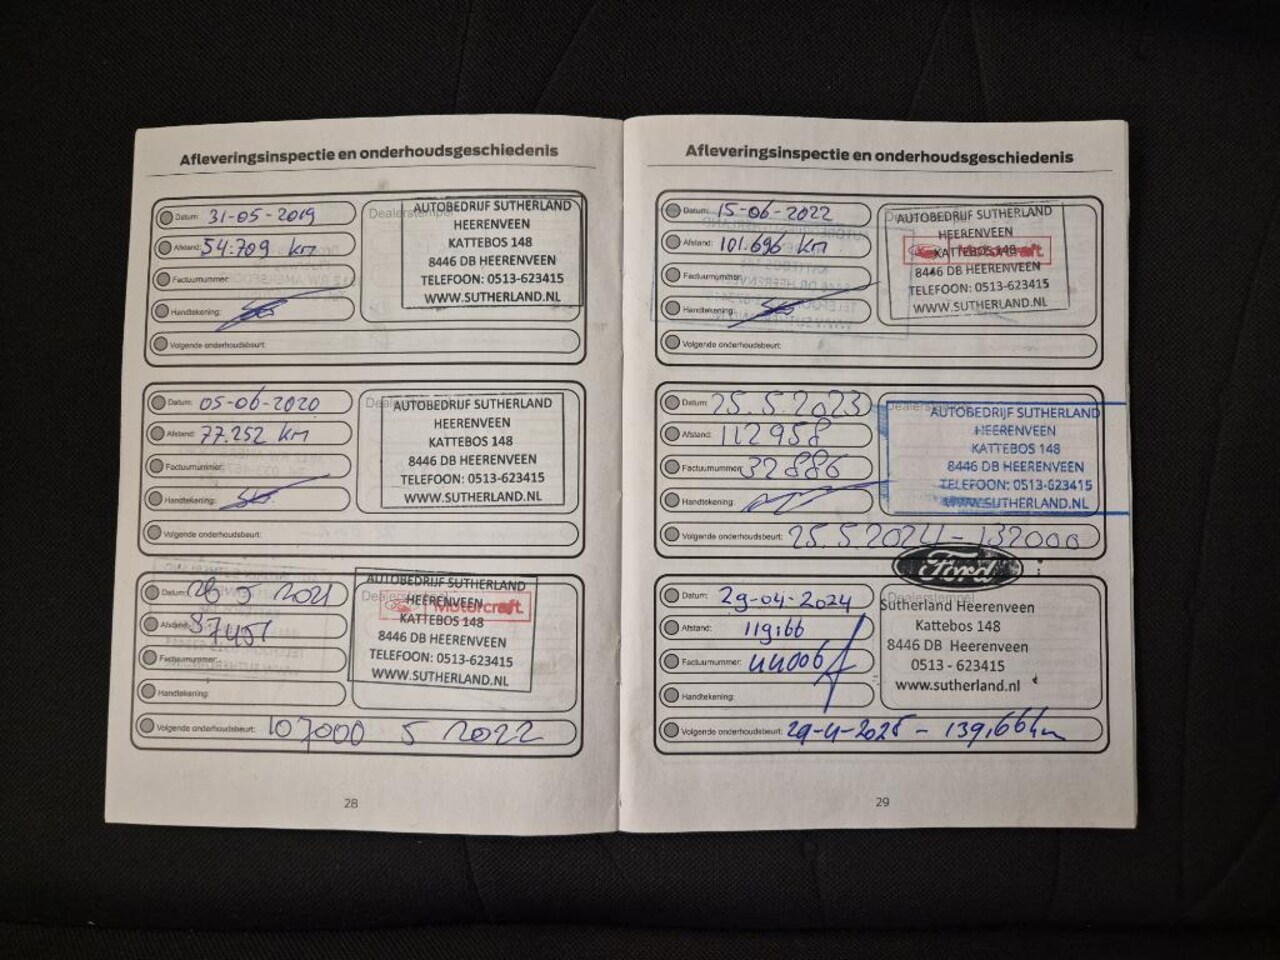 Afleveringsinspectie en onderhoudsgeschiedenis
Datum: 31-05-2019
Afstand: 54.709 km
Factuurnummer:
Handtekening:
Volgende onderhoudsbeurt:
Dealerstempel
AUTOBEDRIJF SUTHERLAND
HEERENVEEN
KATTEBOS 148
8446 DB HEERENVEEN
TELEFOON: 0513-623415
WWW.SUTHERLAND.NL
Datum: 05-06-2020
Afstand: 77.252 km
Factuurnummer:
Handtekening:
Volgende onderhoudsbeurt:
AUTOBEDRIJF SUTHERLAND
HEERENVEEN
KATTEBOS 148
8446 DB HEERENVEEN
TELEFOON: 0513-623415
WWW.SUTHERLAND.NL
Datum: 2021
Afstand: 87451
Factuurnummer:
Handtekening:
Volgende onderhoudsbeurt: 107000 5 2022
AUTOBEDRIJF SUTHERLAND
HEERENVEEN
Motorcraft
KATTEBOS 148
8446 DB HEERENVEEN
TELEFOON: 0513-623415
WWW.SUTHERLAND.NL
28
Afleveringsinspectie en onderhoudsgeschiedenis
Datum: 15-06-2022
Afstand: 101.696 km
Factuurnummer:
Handtekening:
Volgende onderhoudsbeurt:
AUTOBEDRIJF SUTHERLAND
HEERENVEEN
KATTEBOS 148
8446 DB HEERENVEEN
TELEFOON: 0513-623415
WWW.SUTHERLAND.NL
Datum: 25.5.2023
Afstand: 112958
Factuurnummer: 32886
Handtekening:
Volgende onderhoudsbeurt: 25.5.2024 - 132000
Dealerstempel
AUTOBEDRIJF SUTHERLAND
HEERENVEEN
KATTEBOS 148
8446 DB HEERENVEEN
TELEFOON: 0513-623415
WWW.SUTHERLAND.NL
Datum: 29-04-2024
Afstand: 119166
Factuurnummer: 44006
Handtekening:
Volgende onderhoudsbeurt: 29-4-2025 - 139.166 km
Ford
Dealerstempel
Sutherland Heerenveen
Kattebos 148
8446 DB Heerenveen
0513 - 623415
www.sutherland.nl
29